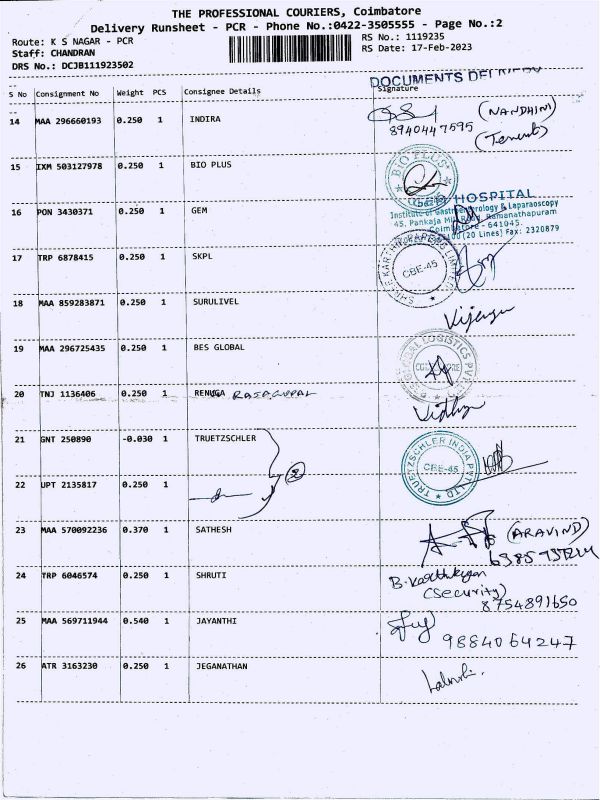 THE PROFESSIONAL COURIERS, Coimbatore
Delivery Runsheet - PCR - Phone No.:0422-3505555 - Page No.:2
Route: K S NAGAR - PCR
RS No.: 1119235
Staff: CHANDRAN
RS Date: 17-Feb-2023
DRS No.: DCJB111923502
DOCUMENTS
S No Consignment No Weight PCS Consignee Details Signature
14 MAA 296660193 0.250 1 INDIRA (NANDHINI)
8940447595 (Tenent)
15 IXM 503127978 0.250 1 BIO PLUS
BIO PLUS
16 PON 3430371 0.250 1 GEM
HOSPITAL
Institute of Gastroenterology & Laparaoscopy
45, Pankaja Mill Road, Ramanathapuram
Coimbatore - 641045.
(20 Lines) Fax: 2320879
17 TRP 6878415 0.250 1 SKPL
CBE-45
18 MAA 859283871 0.250 1 SURULIVEL
19 MAA 296725435 0.250 1 BES GLOBAL
LOGISTICS
20 TNJ 1136406 0.250 1 RENUGA RAJAGOPAL
Vidhya
21 GNT 250890 -0.030 1 TRUETZSCHLER
TRUETZSCHLER INDIA PVT LTD
CBE-45
22 UPT 2135817 0.250 1
23 MAA 570092236 0.370 1 SATHESH (ARAVIND)
24 TRP 6046574 0.250 1 SHRUTI B. Karthikeyan
(Security)
8754891650
25 MAA 569711944 0.540 1 JAYANTHI
9884064247
26 ATR 3163230 0.250 1 JEGANATHAN